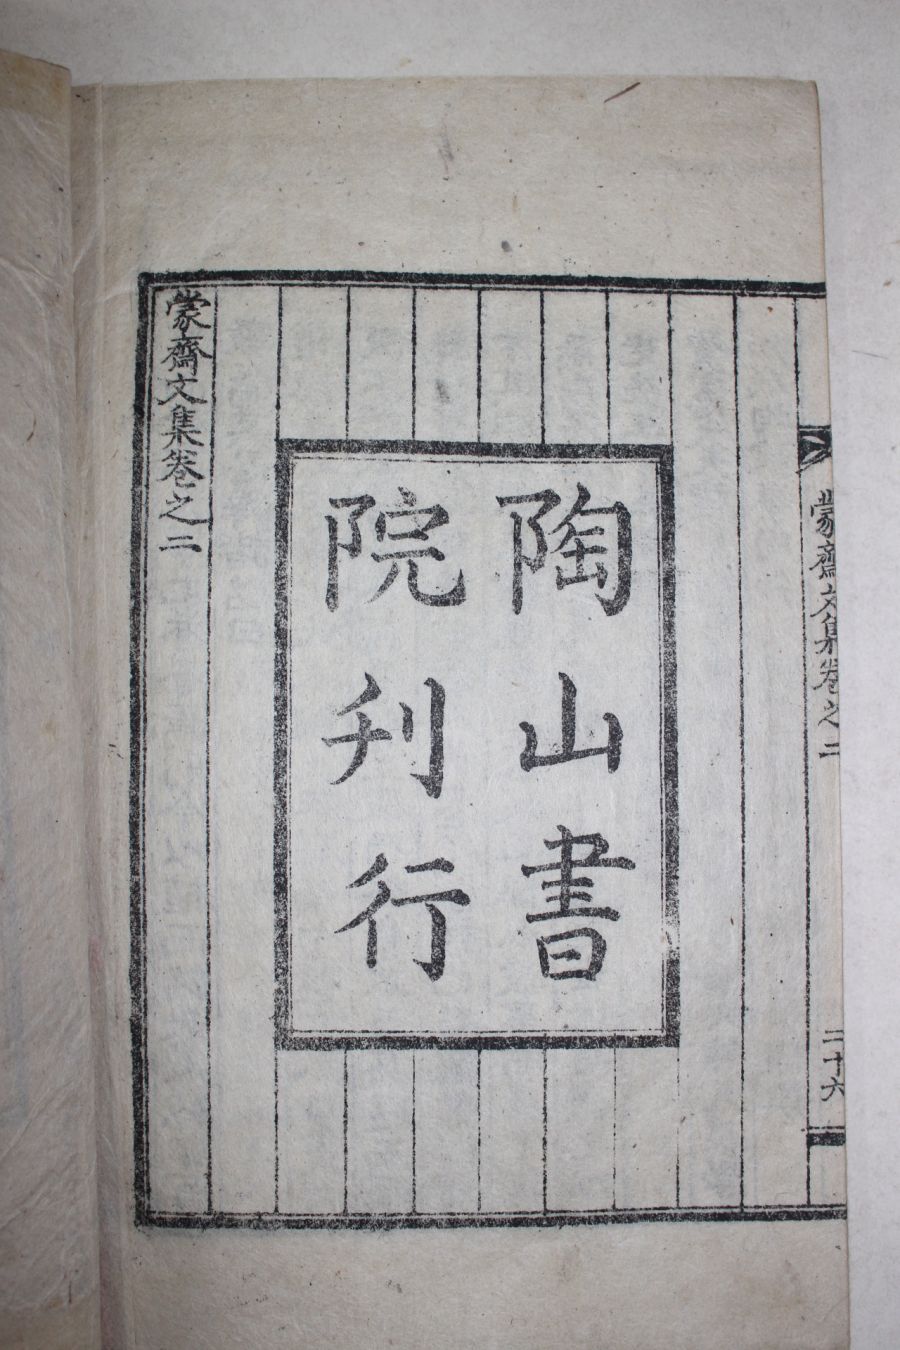 蒙齋文集卷之二
二十六
陶山書
院刊行
蒙齋文集卷之二